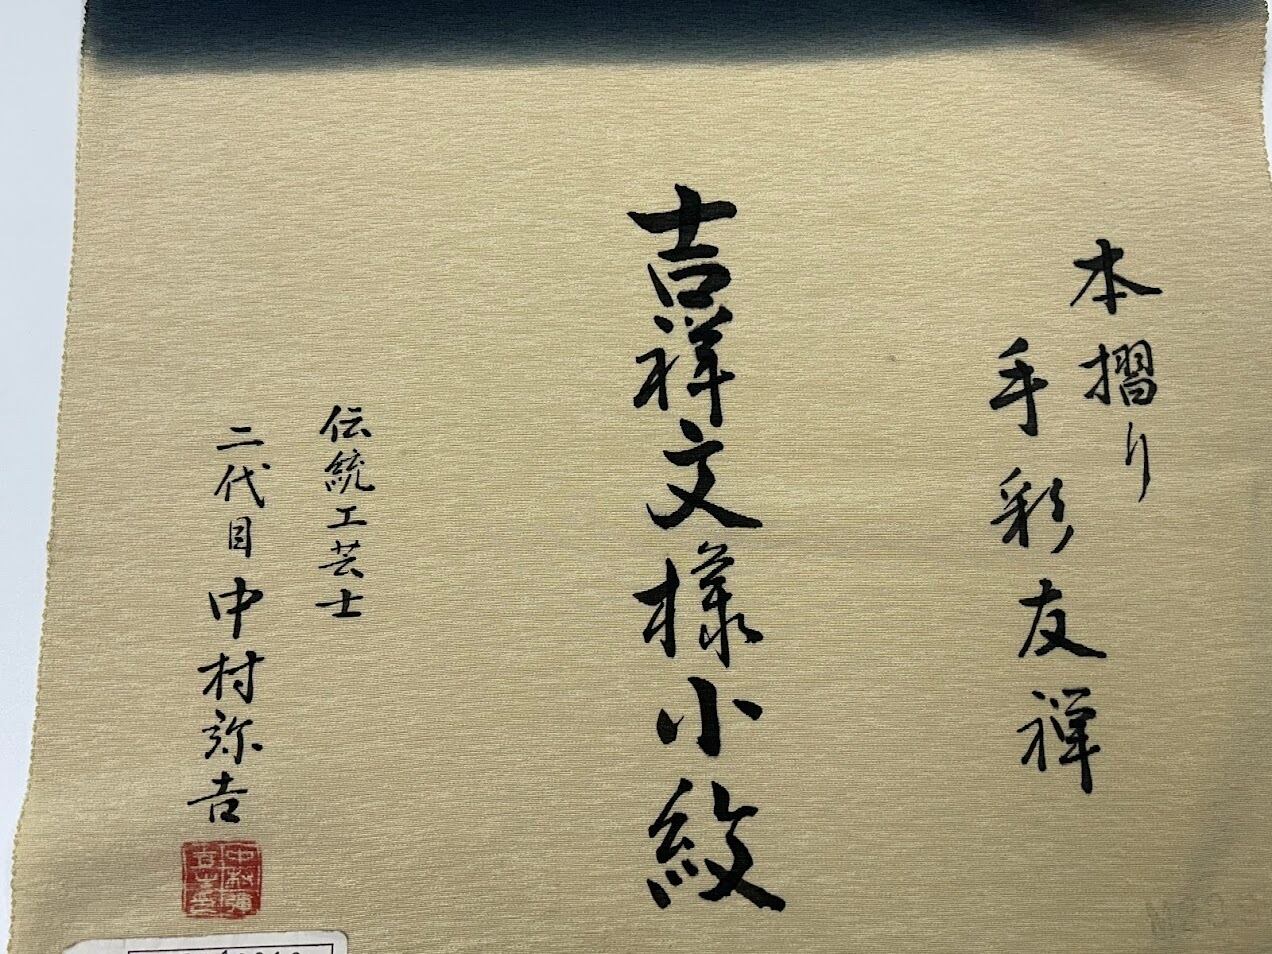 本摺り
手彩友禅
吉祥文様小紋
伝統工芸士
二代目中村弥吉